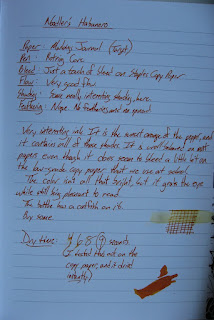 Noodler's Habanero
Paper: Multidisc Journal (Target)
Pen: Rotring Core
Bleed: Just a touch of bleed on Staples Copy Paper
Flow: Very good flow
Shading: Some really interesting shading here
Feathering: Nope. No feathering and no spread
Very interesting ink. It is the sweet orange of the pepper, and
it contains all of those shades. It is well behaved on most
papers even though it does seem to bleed a little bit on
the low-grade copy paper that we use at school.
The color isn't all that bright, but it grabs the eye
while still being pleasant to read.
The bottle has a catfish on it.
Buy some.
Dry times: 4 6 8 9 seconds
I tested this nib on the
copy paper, and it dried
instantly